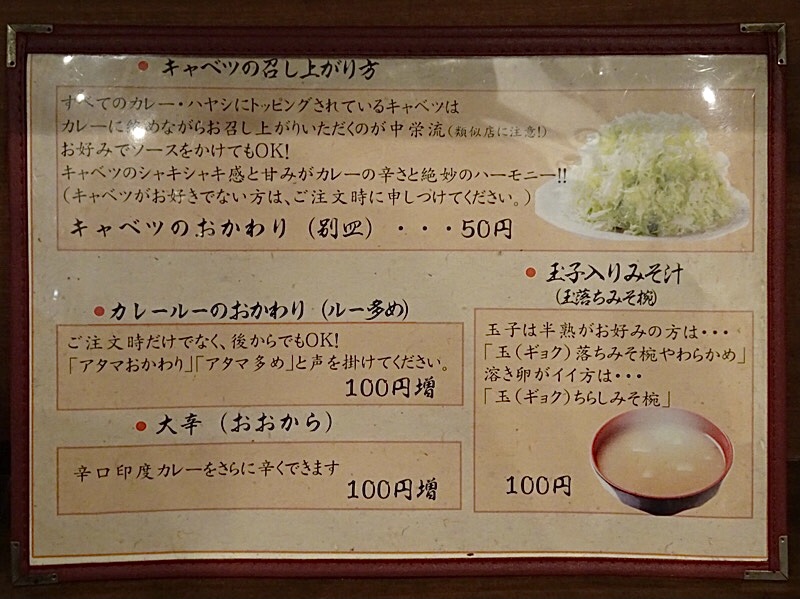 ● キャベツの召し上がり方
すべてのカレー・ハヤシにトッピングされているキャベツは
カレーに絡めながらお召し上がりいただくのが中栄流(類似店に注意!)
お好みでソースをかけてもOK!
キャベツのシャキシャキ感と甘みがカレーの辛さと絶妙のハーモニー!!
(キャベツがお好きでない方は、ご注文時に申しつけてください。)
キャベツのおかわり(別皿)・・・50円
● カレールーのおかわり(ルー多め)
ご注文時だけでなく、後からでもOK!
「アタマおかわり」「アタマ多め」と声を掛けてください。
100円増
● 大辛(おおから)
辛口印度カレーをさらに辛くできます
100円増
● 玉子入りみそ汁
(玉落ちみそ椀)
玉子は半熟がお好みの方は・・・
「玉(ギョク)落ちみそ椀やわらかめ」
溶き卵がイイ方は・・・
「玉(ギョク)ちらしみそ椀」
100円